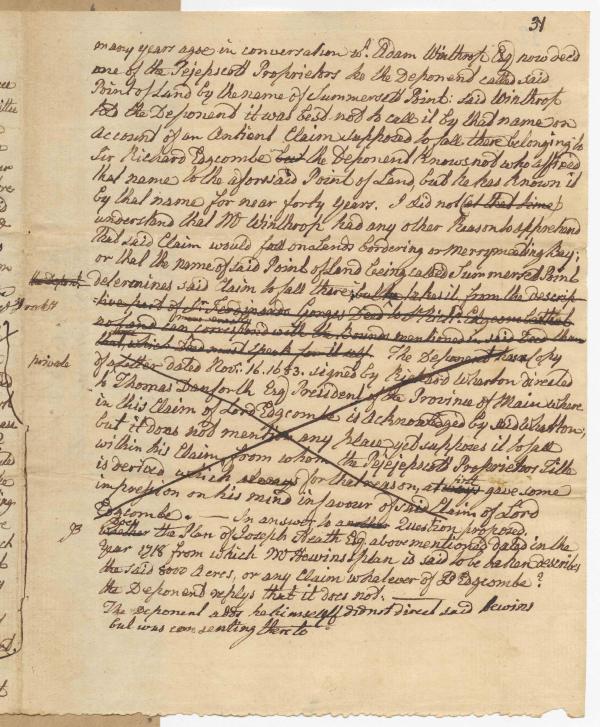 31
many years agoe in conversation wt. Adam Winthrop Esq now decd
one of the Pejepscott Proprietors he the Deponend called said
Point of Land by the name of Summersett Point: said Winthrop
told the Deponend it was best not to call it by that name on
account of an Antient Claim supposed to fall there belonging to
Sir Richard Edgcombe but the Deponend knows not who affixed
that name to the aforesaid Point of Land, but he has known it
by that name for near forty years. I did not (at that time)
understand that Mr Winthrop had any other Reason to apprehend
that said Claim would fall on lands bordering on Merrymeeting Bay;
or that the name of said Point of Land being called Summersett Point
the Depont. determines said Claim to fall there; but he takes it from the descrip
-tive part of Sr. Ferdinando Gorges Deed to Sr Richd. Edgcombe that
no Land can correspond with the Bounds mentioned in said Deed than
that, which Deed must speak for itself. The Deponend has a Copy
private
of a Letter dated Nov. 16. 1683. signed by Richard Wharton directed
to Thomas Danforth Esq President of the Province of Main where
in this Claim of Lord Edgcombe is Acknowledged by said Wharton;
but it does not mention any place yet supposes it to fall
within his Claim, from whom the Pejepscott Proprietors Title
is derived which always for that reason, at first gave some
impression on his mind in favour of said Claim of Lord
Edgcombe. — In answer to another Question proposed.
whether Does the Plan of Joseph Heath Esq above mentioned dated in the
Year 1718 from which Mr Hewins's plan is said to be taken describe
the said 8000 Acres, or any Claim whatever of Ld Edgcombe?
the Deponend replys that it does not. —
The Deponend adds he himself did not direct said Hewins
but was consenting thereto